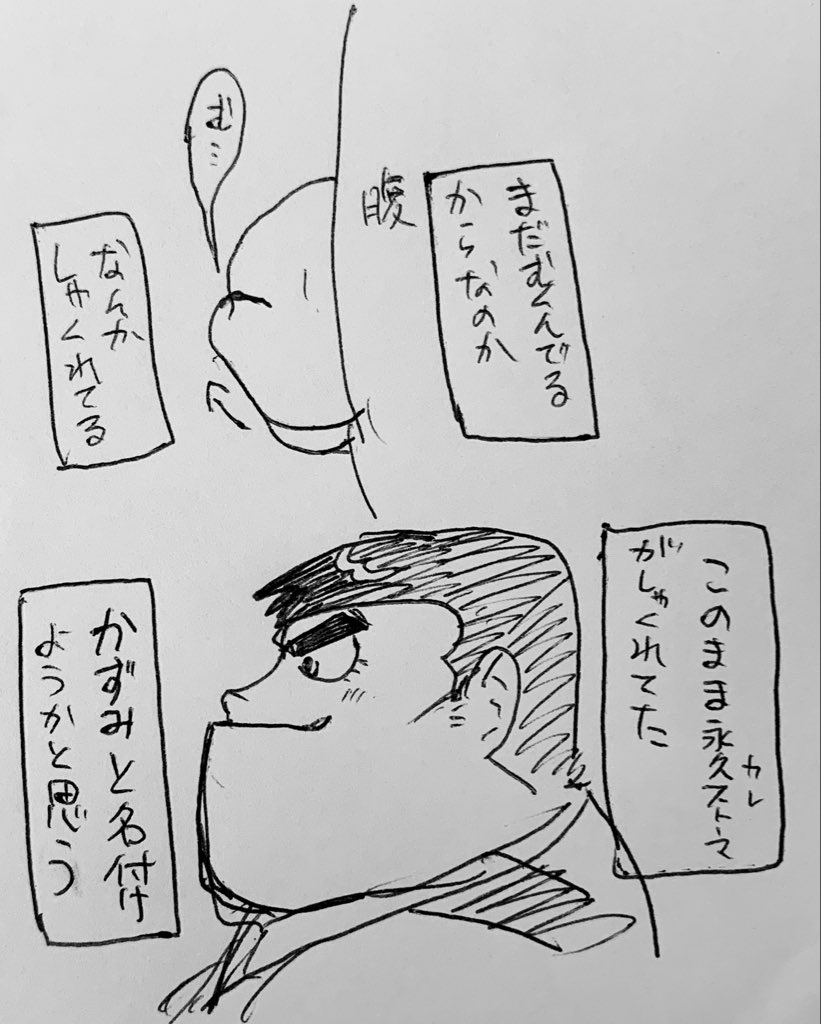 まだむくんでる
からなのか
腹
む…
なんか
しゃくれてる
このまま永久ストーマ
カレ
がしゃくれてた
かずみと名付け
ようかと思う